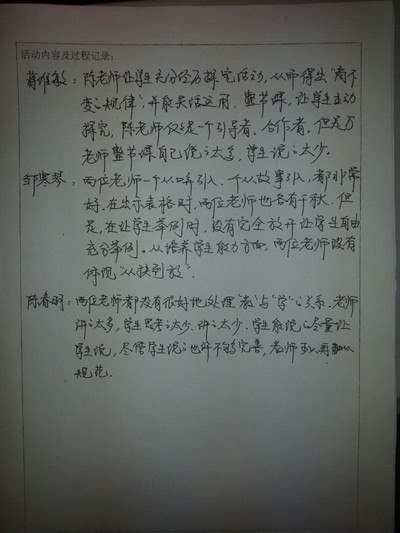 活动内容及过程记录：
敏：陈老师让学生充分经历探究活动，从而得出“商不
变的规律”，并取灵活运用。整节课，让学生主动
探究，陈老师仅仅是一个引导者、合作者。但是万
老师整节课自己说的太多，学生说的太少。
邹寒琴：两位老师一个从口算引入，一个从故事引入，都非常
好。在出示表格时，两位老师也各有千秋。但
是，在让学生举例时，没有完全放开让学生自由
充分举例。从培养学生能力方面，两位老师没有
体现“从扶到放”。
陈春明：两位老师都没有很好地处理“教”与“学”的关系。老师
讲的太多，学生思考的太少、讲的太少。学生能说的尽量让
学生说，尽管学生说的也许不够完善，老师可以再加以
规范。